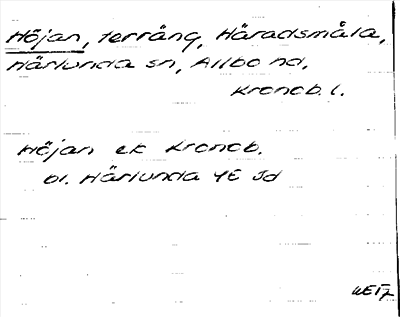 Höjan, terräng, Häradsmåla,
Härlunda sn, Allbo hd,
Kronob. l.
Höjan ek Kronob.
bl. Härlunda 4E Id
WEIJ